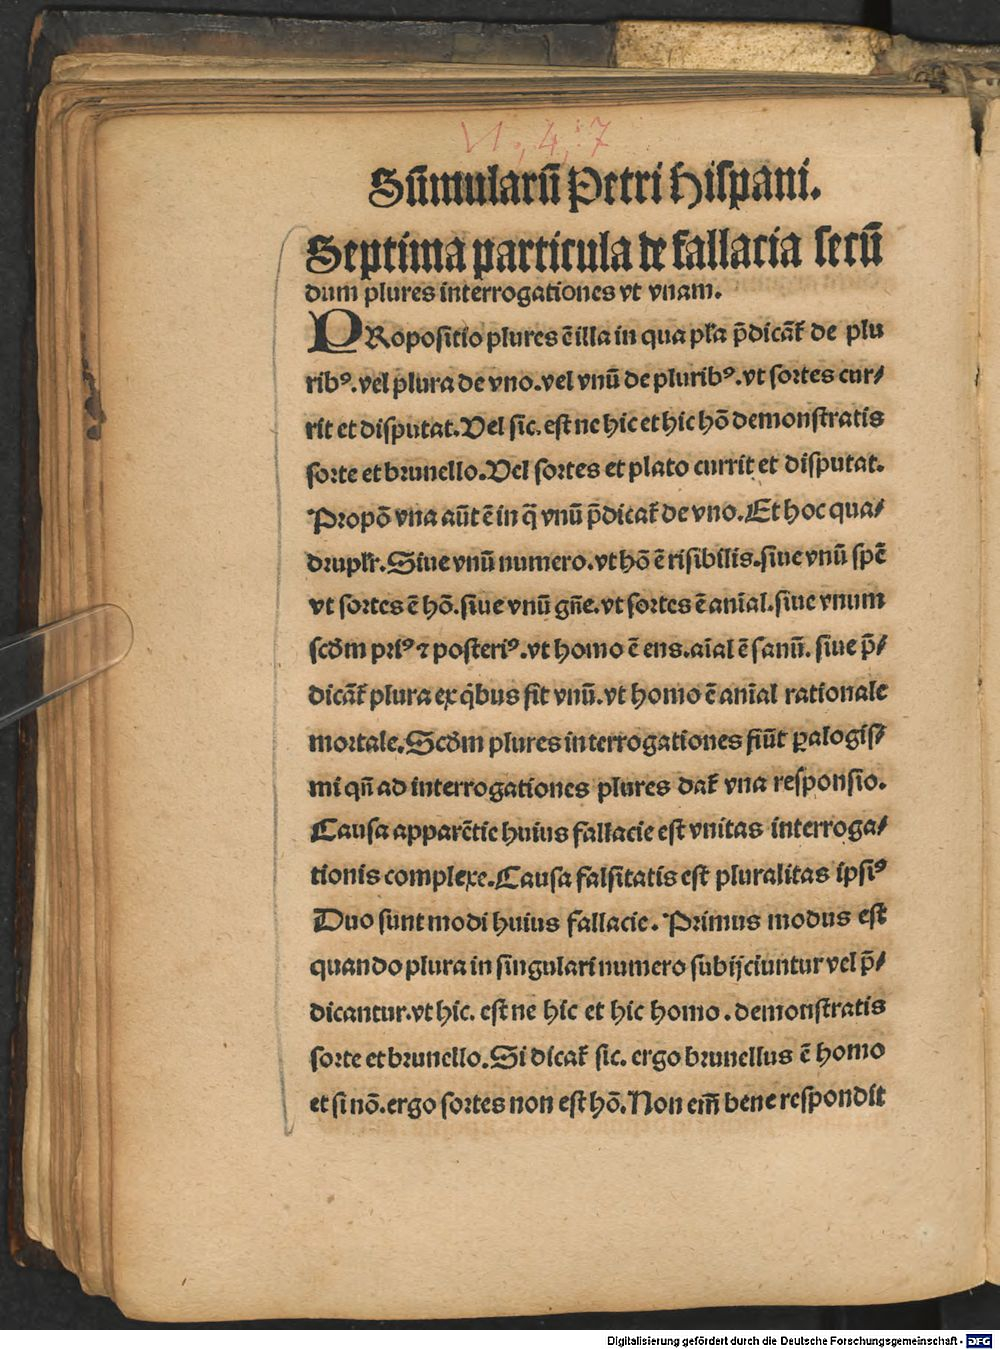 VI, 4, 7
Sūmularū Petri Hiſpani.
Septima particula de fallacia ſecū
dum plures interrogationes vt vnam.
PRopoſitio plures ē illa in qua pl̄a p̄dicāt̄ de plu
ribꝰ. vel plura de vno. vel vnū de pluribꝰ. vt ſortes cur⸗
rit et diſputat. Vel ſic. eſt ne hic et hic hō demonſtratis
ſorte et brunello. Vel ſortes et plato currit et diſputat.
Propō vna aūt ē in q̄ vnū p̄dicat̄ de vno. Et hoc qua⸗
druplr̄. Siue vnū numero. vt hō ē riſibilis. ſiue vnū ſpē
vt ſortes ē hō. ſiue vnū gn̄e. vt ſortes ē anīal. ſiue vnum
ſcd̄m priꝰ ⁊ poſteriꝰ. vt homo ē ens. aīal ē ſanū. ſiue p̄⸗
dicāt̄ plura ex qͥbus fit vnū. vt homo ē anīal rationale
mortale. Scd̄m plures interrogationes fiūt ꝑalogiſ⸗
mi qn̄ ad interrogationes plures dat̄ vna reſponſio.
Cauſa apparētie huius fallacie eſt vnitas interroga⸗
tionis complexe. Cauſa falſitatis eſt pluralitas ipſiꝰ
Duo ſunt modi huius fallacie. Primus modus eſt
quando plura in ſingulari numero ſubijciuntur vel p̄⸗
dicantur. vt hic. eſt ne hic et hic homo. demonſtratis
ſorte et brunello. Si dicat̄ ſic. ergo brunellus ē homo
et ſi nō. ergo ſortes non eſt hō. Non em̄ bene reſpondit
Digitalisierung gefördert durch die Deutsche Forschungsgemeinschaft - DFG